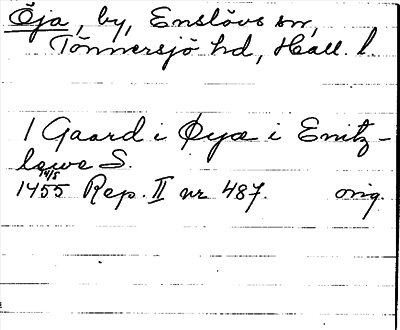 Öja, by, Enslövs sn,
Tönnersjö hd, Hall. l.
1 Gaard i Øyæ i Enitz-
lewe S.
14/5
1455 Rep. II nr 487. orig.